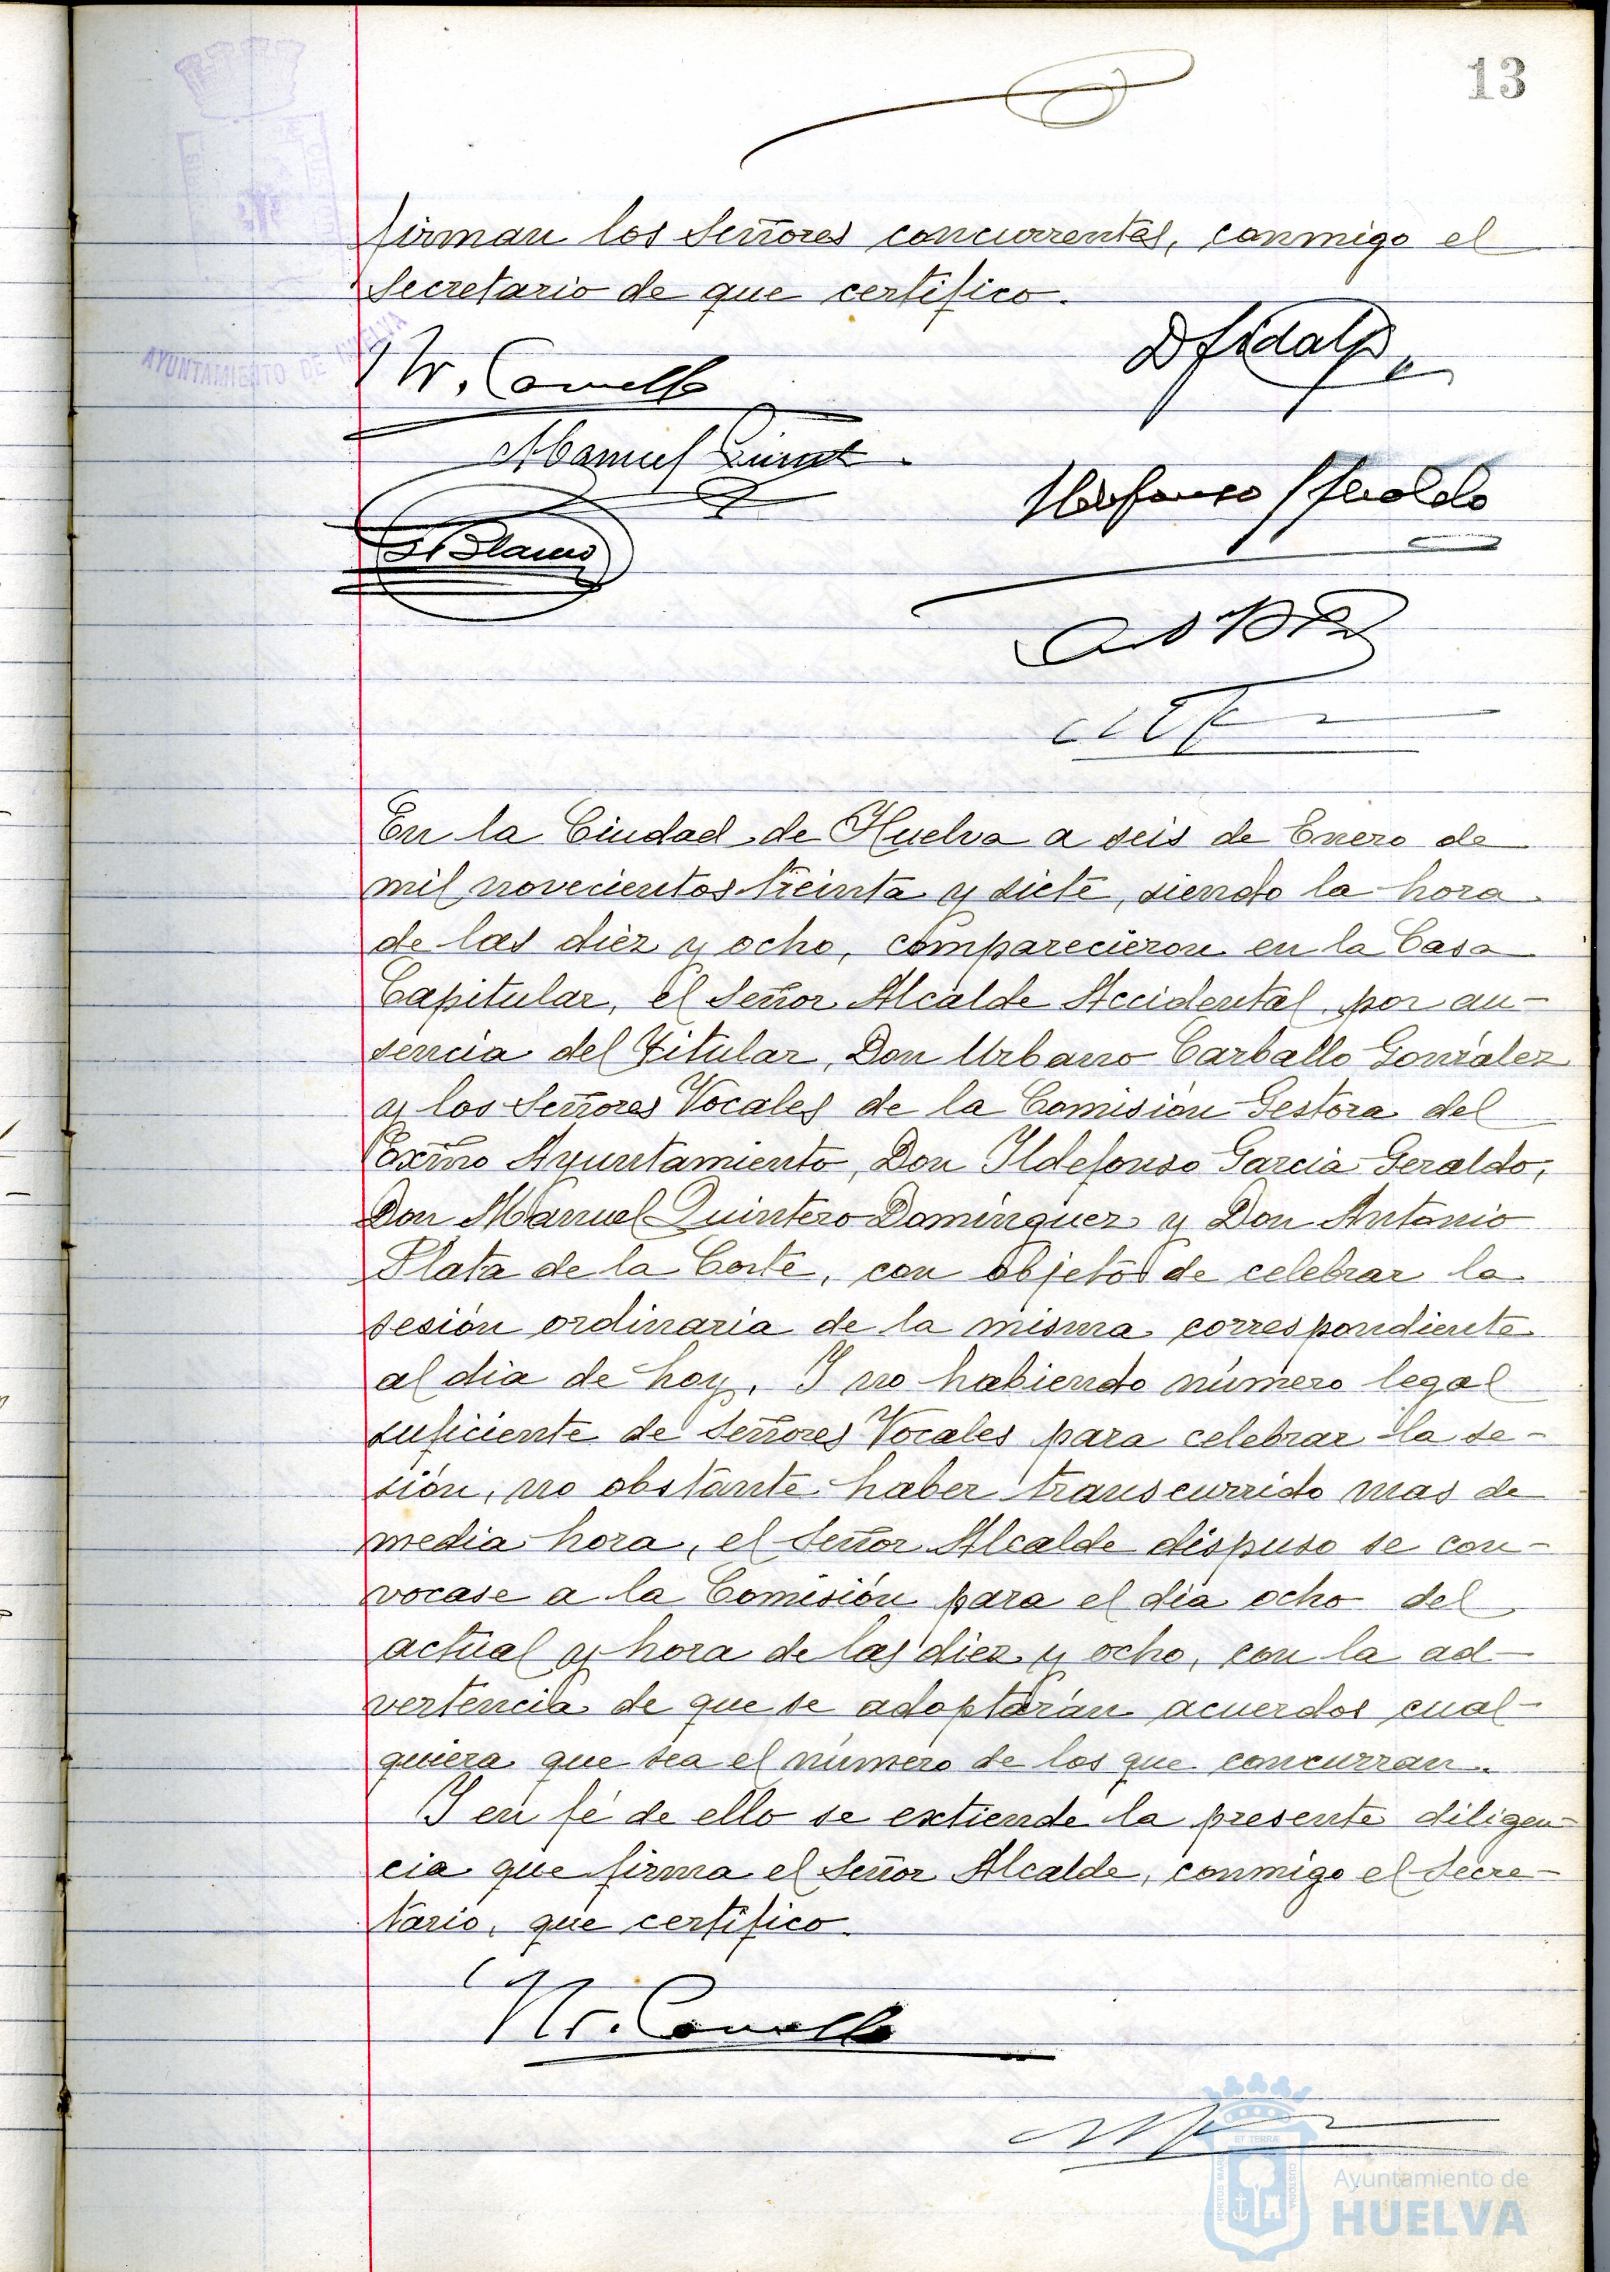 13
firman los Señores concurrentes, conmigo el
Secretario de que certifico.
AYUNTAMIENTO DE HUELVA
Manuel
Ildefonso Geraldo
En la Ciudad de Huelva a seis de Enero de
mil novecientos treinta y siete, siendo la hora
de las diez y ocho, comparecieron en la Casa
Capitular, el Señor Alcalde Accidental por au-
sencia del Titular, Don Urbano Carballo González
y los Señores Vocales de la Comisión Gestora del
Excmo Ayuntamiento, Don Ildefonso Garcia Geraldo,
Don Manuel Quintero Domínguez y Don Antonio
Plata de la Corte, con objeto de celebrar la
sesión ordinaria de la misma correspondiente
al dia de hoy. Y no habiendo número legal
suficiente de Señores Vocales para celebrar la se-
sión, no obstante haber transcurrido mas de
media hora, el Señor Alcalde dispuso se con-
vocase a la Comisión para el día ocho del
actual y hora de las diez y ocho, con la ad-
vertencia de que se adoptarán acuerdos cual-
quiera que sea el número de los que concurran.
Y en fé de ello se extiende la presente diligen-
cia que firma el Señor Alcalde, conmigo el Secre-
tario, que certifico.
PORTUS MARIS ET TERRÆ CUSTODIA
Ayuntamiento de
HUELVA